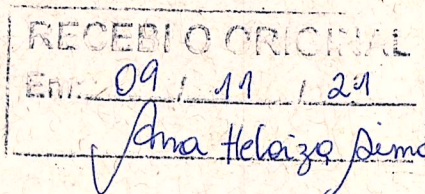 RECEBI O ORIGINAL
Em: 09 / 11 / 21
Ana Heloiza